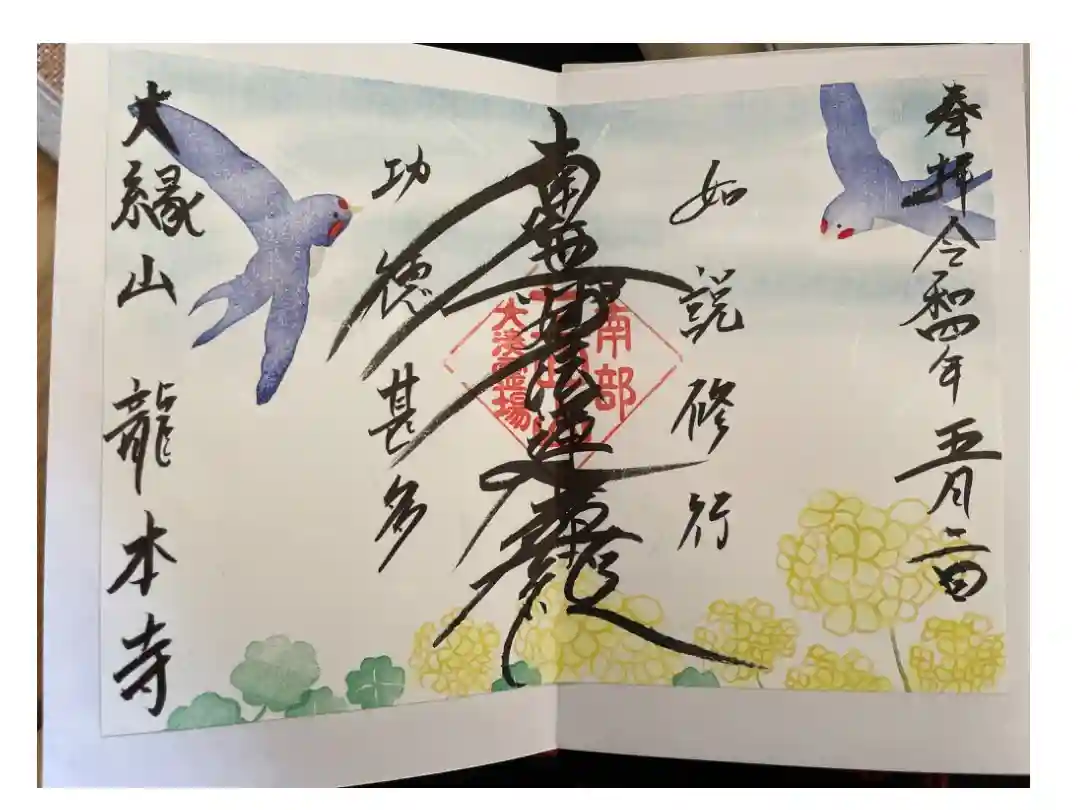 奉拝令和四年五月二日
如説修行
南部
南無妙法蓮華経
功徳甚多
大縁山 龍本寺